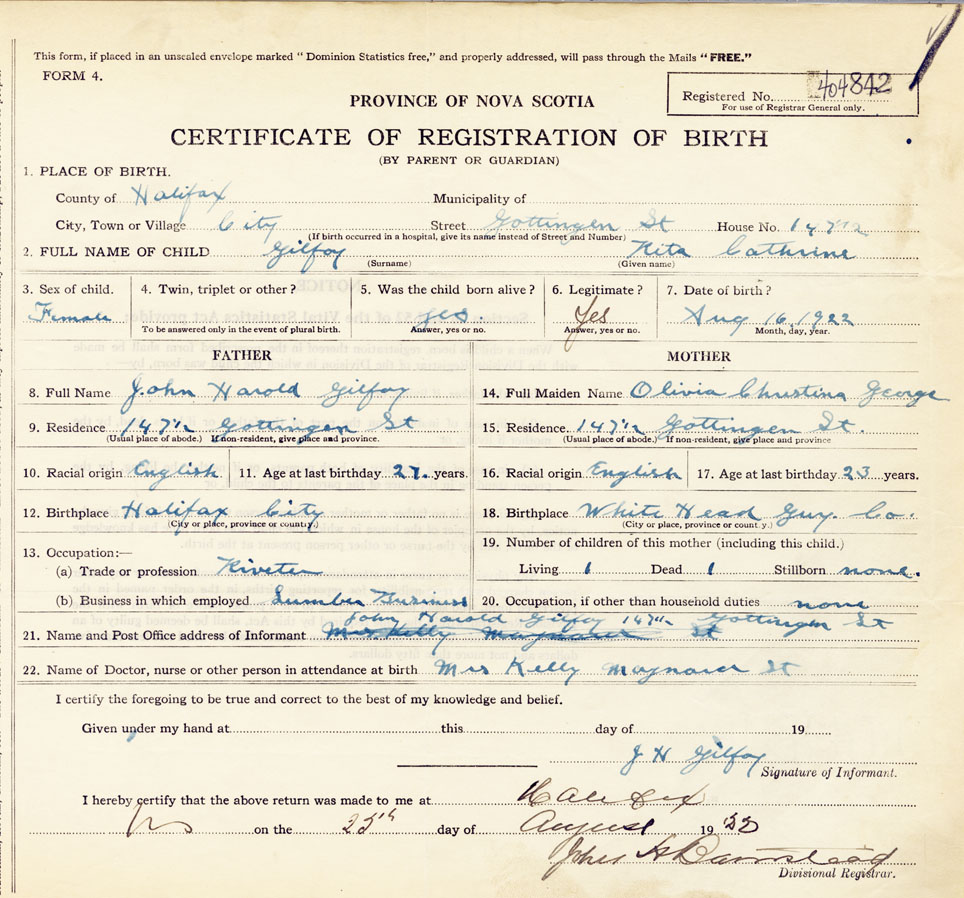 This form, if placed in an unsealed envelope marked "Dominion Statistics free," and properly addressed, will pass through the Mails "FREE."
FORM 4.
Registered No. 404842
For use of Registrar General only.
PROVINCE OF NOVA SCOTIA
CERTIFICATE OF REGISTRATION OF BIRTH
(BY PARENT OR GUARDIAN)
1. PLACE OF BIRTH.
County of Halifax Municipality of
City, Town or Village City Street Gottingen St House No. 147½
(If birth occurred in a hospital, give its name instead of Street and Number)
2. FULL NAME OF CHILD Gilfoy Rita Cathrine
(Surname) (Given name)
3. Sex of child. 4. Twin, triplet or other? 5. Was the child born alive? 6. Legitimate? 7. Date of birth?
Female yes. Yes Aug 16, 1922
To be answered only in the event of plural birth. Answer, yes or no. Answer, yes or no. Month, day, year.
FATHER MOTHER
8. Full Name John Harold Gilfoy 14. Full Maiden Name Olivia Christina George
9. Residence 147½ Gottingen St 15. Residence. 147½ Gottingen St.
(Usual place of abode.) If non-resident, give place and province. (Usual place of abode.) If non-resident, give place and province
10. Racial origin English 11. Age at last birthday 27. years. 16. Racial origin English 17. Age at last birthday 23 years.
12. Birthplace Halifax City 18. Birthplace White Head Guy. Co.
(City or place, province or county.) (City or place, province or county.)
13. Occupation:— 19. Number of children of this mother (including this child.)
(a) Trade or profession Riveter Living 1 Dead 1 Stillborn none.
(b) Business in which employed Lumber Business 20. Occupation, if other than household duties none
John Harold Gilfoy 147½ Gottingen St
21. Name and Post Office address of Informant Mrs Kelly Maynard St
22. Name of Doctor, nurse or other person in attendance at birth Mrs Kelly Maynard St
I certify the foregoing to be true and correct to the best of my knowledge and belief.
Given under my hand at this day of 19
J H Gilfoy
Signature of Informant.
I hereby certify that the above return was made to me at Halifax
NS on the 25th day of August 1922
John H Barnstead
Divisional Registrar.